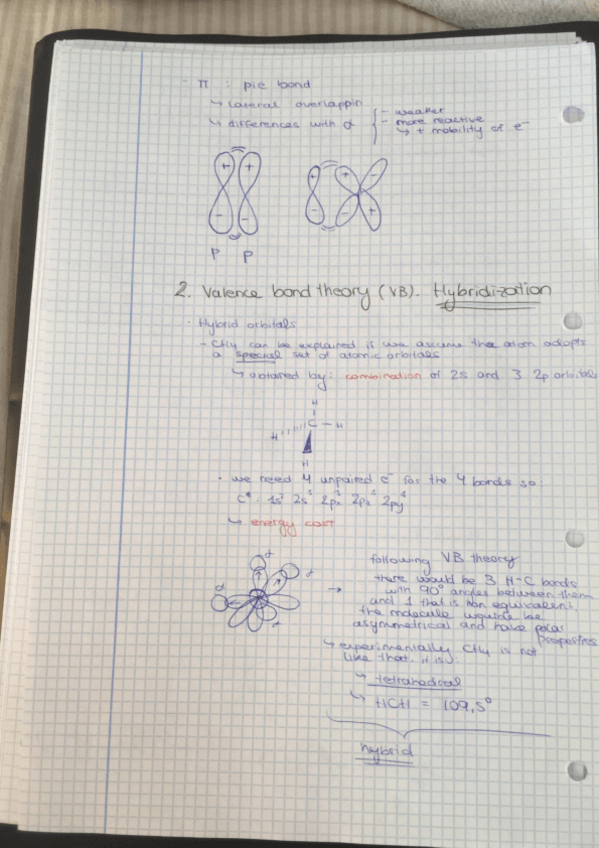 - π : pie bond
↳ lateral overlappin
↳ differences with σ
- weaker
- more reactive
↳ + mobility of e⁻
+ +
- -
P P
+ - + - - +
2. Valence bond theory (VB). Hybridization
· Hybrid orbitals
- CH₄ can be explained if we assume the atom adopts
a special set of atomic orbitals
↳ obtained by: combination of 2s and 3 2p orbital
H
H C - H
H
· we need 4 unpaired e⁻ for the 4 bonds so:
C* : 1s² 2s¹ 2px¹ 2pz¹ 2py¹
↳ energy cost
σ
σ σ
σ
→ following VB theory
there would be 3 H-C bonds
with 90° angles between them
and 1 that is non equivalent.
the molecule would be
asymmetrical and have polar
properties
↳ experimentally CH₄ is not
like that. it is:
↳ tetrahedical
↳ HCH = 109,5°
hybrid